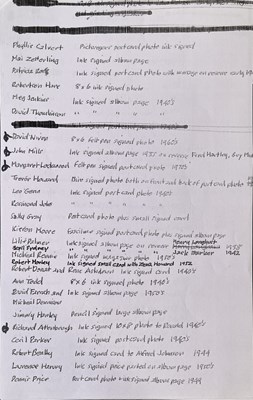 Phyllis Calvert Picturegoer postcard photo ink signed
Mai Zetterling Ink signed album page
Patricia Roc Ink signed postcard photo with message on reverse early
Robertson Hare 8x6 ink signed photo
Meg Jenkins Ink signed album page 1940's
David Tomlinson " " " " "
David Niven 8x6 felt pen signed photo 1960's
John Mills Ink signed album page 1955 on reverse
Margaret Lockwood Felt pen signed postcard photo 1970's
Trevor Howard signed photo both on front and back of postcard photo
Leo Genn Ink signed postcard photo 1960's
Rosamund John " " " "
Sally Gray Postcard photo plus small signed card
Kieron Moore Facsimile signed postcard photo plus signed album page
Lilli Palmer Ink signed album page on reverse
Michael Rennie Ink signed magazine photo 1950's
Robert Morley Ink signed card with 1952
Robert Donat and Renee Asherson Ink signed card 1940's
Ann Todd 8x6 Ink signed photo 1940's
David Farrar and Ink signed album page 1950's
Michael Denison
Jimmy Hanley Pencil signed large album page
Richard Attenborough Ink signed 10x8 photo to Ronald 1940's
Cecil Parker Ink signed postcard photo 1940's
Robert Beatty Ink signed card to Alfred Johnson 1949
Laurence Harvey Ink signed piece pasted on album page 1950's
Dennis Price Postcard photo + ink signed album page 1949